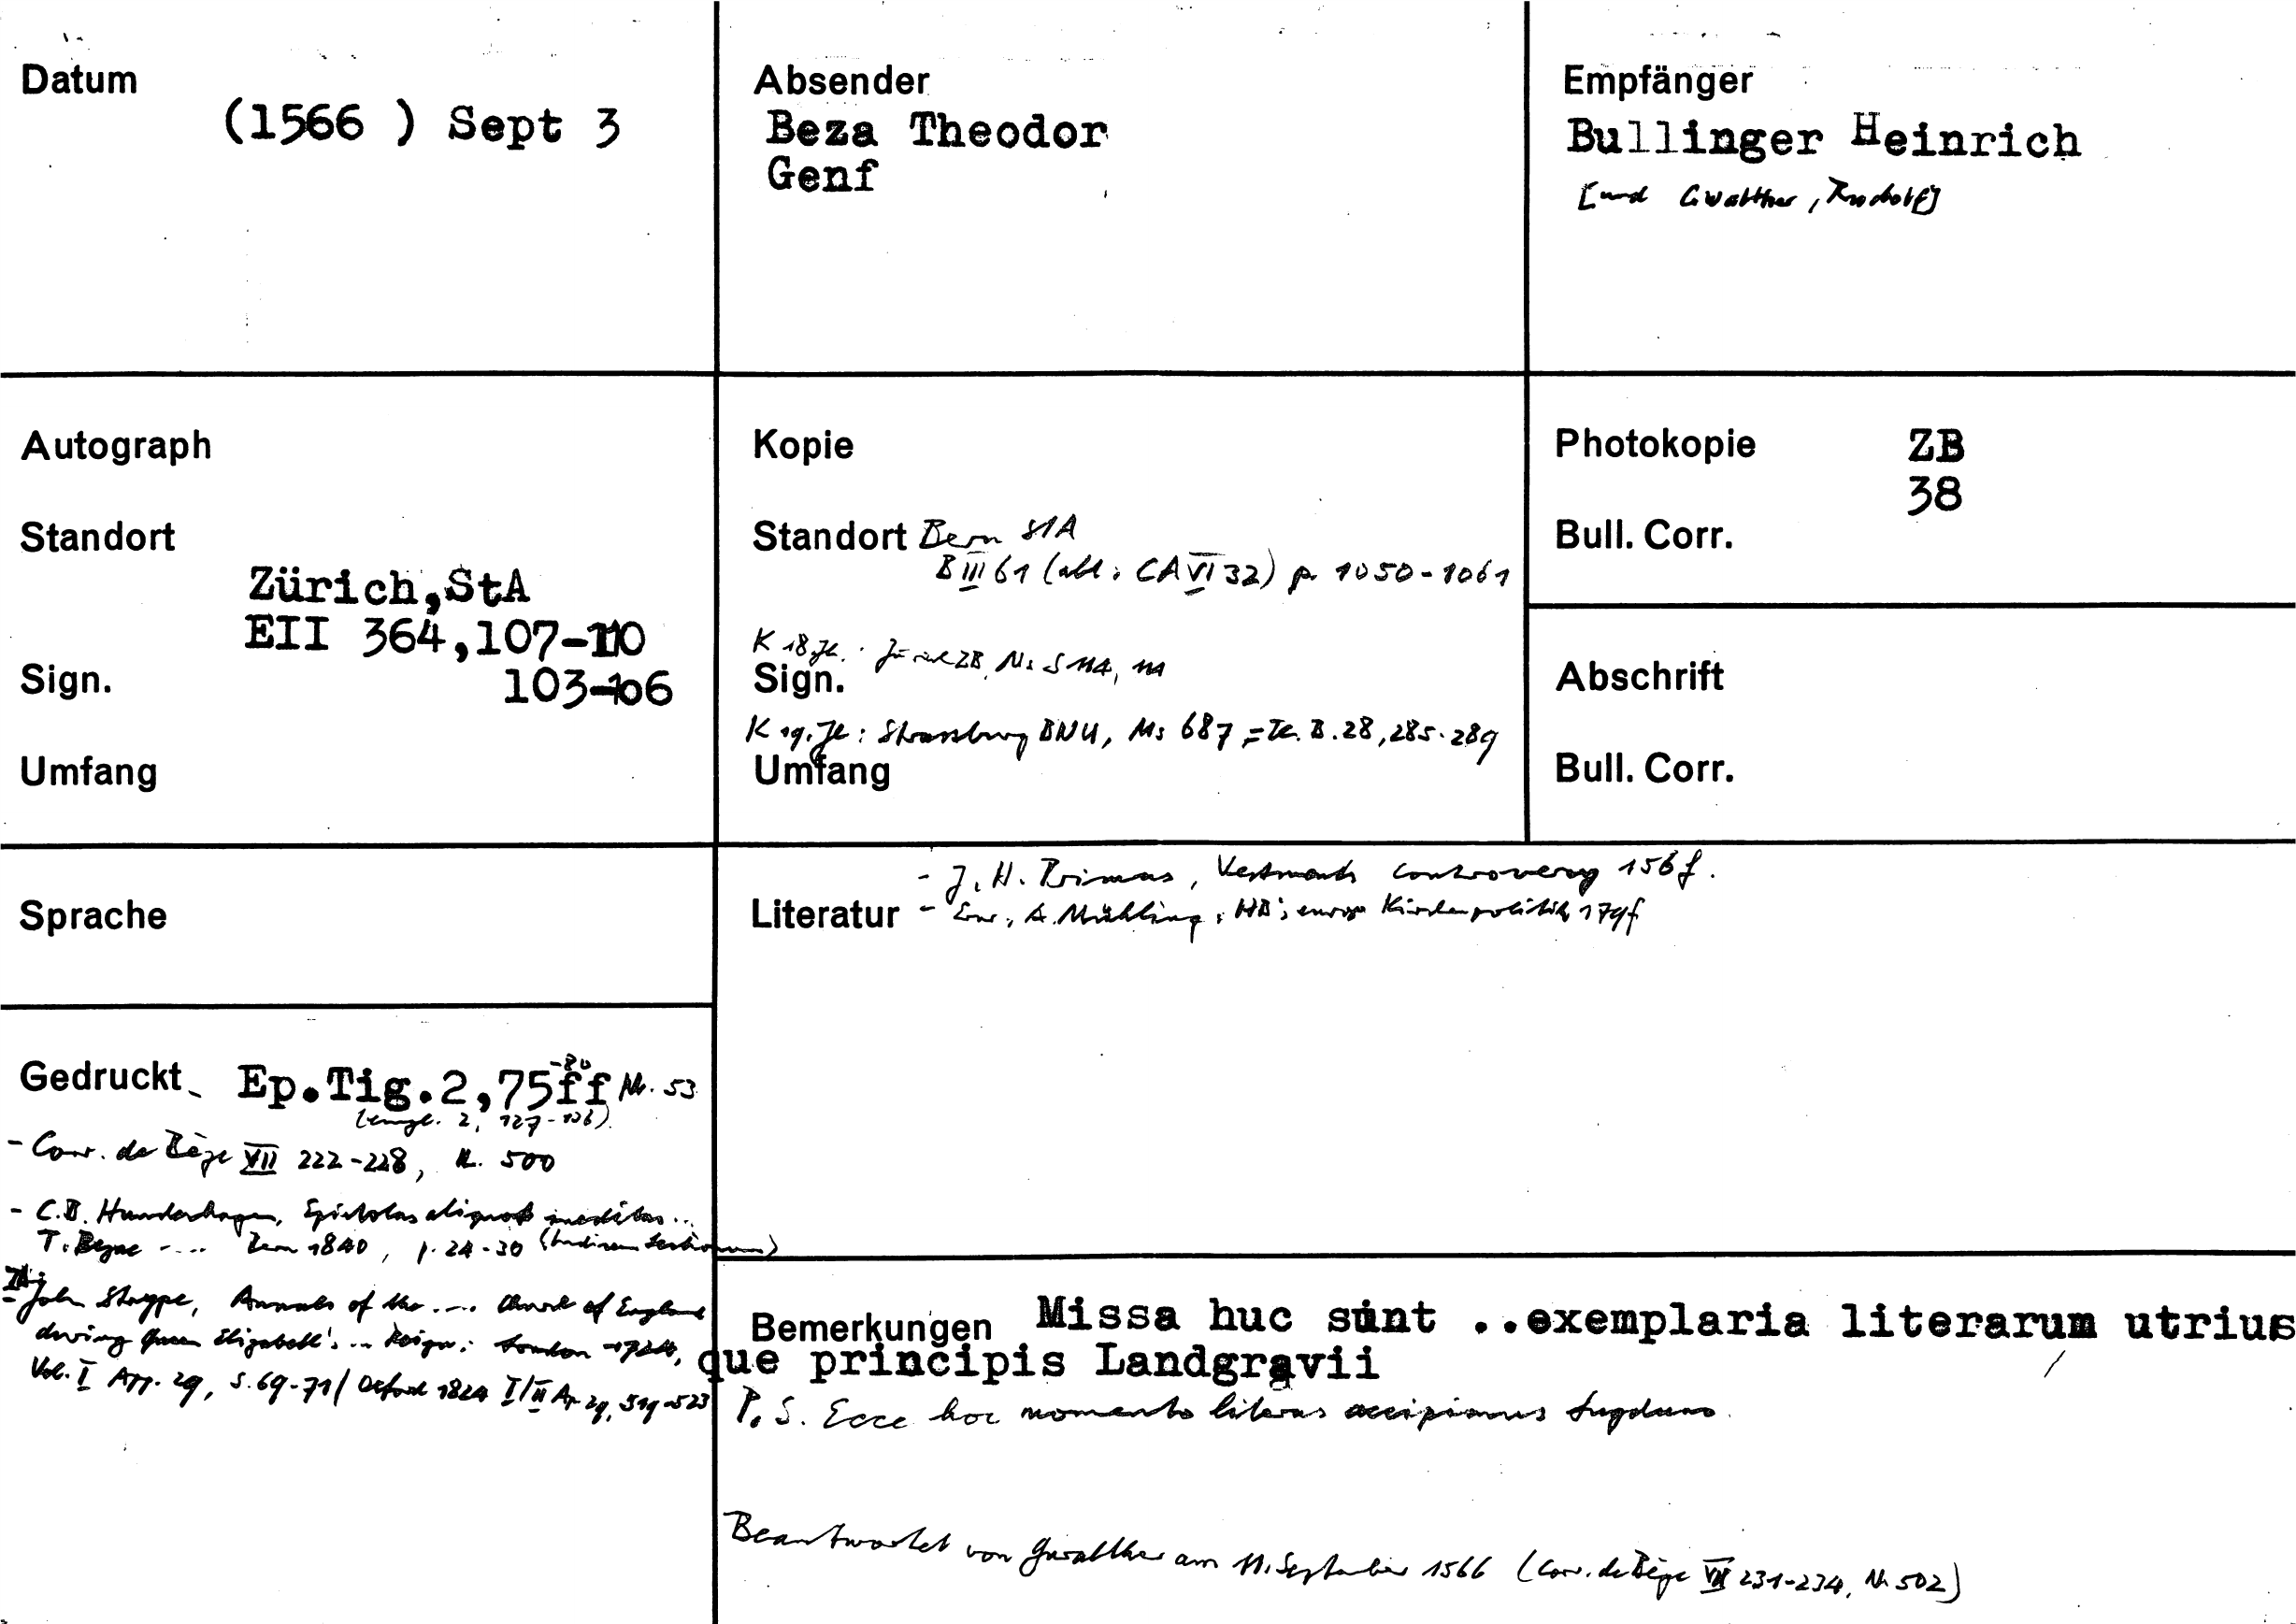 Datum
(1566 ) Sept 3
Absender
Beza Theodor
Genf
Empfänger
Bullinger Heinrich
[und Gwalther, Rudolf]
Autograph
Standort
Zürich,StA
EII 364,107-110
Sign.
103-106
Umfang
Kopie
Standort Bern StA
B III 61 (alt: CA VI 32) p. 1050-1061
K 18. Jh. Zürich ZB, Ms S 114, 111
Sign.
K 19. Jh: Strassburg BNU, Ms 687 = Th. B. 28, 285-289
Umfang
Photokopie
ZB
38
Bull. Corr.
Abschrift
Bull. Corr.
Sprache
- J. H. Primus, Vestments controversy 156 f.
Literatur - A. Mühling, HB's europ. Kirchenpolitik 179f
Gedruckt Ep.Tig.2,75ff -80 Nr. 53
(engl. 2, 127-136)
- Corr. de Bèze VII 222-228, N. 500
- C.B. Hundeshagen, Epistolas aliquot ineditas...
T. Bezae .... Bern 1840, p. 24-30
- John Strype, Annals of the .... Church of England
during Queen Elizabeth's ... Reign: London 1724,
Vol. I App. 29, S. 69-71 / Oxford 1824 I/II Ap 29, 519-523
Bemerkungen Missa huc sunt ..exemplaria literarum utrius
que principis Landgravii
P. S. Ecce hoc momento literas accipimus Lugduno.
Beantwortet von Gwalther am 11. September 1566 (Corr. de Bèze VII 231-234, Nr 502)